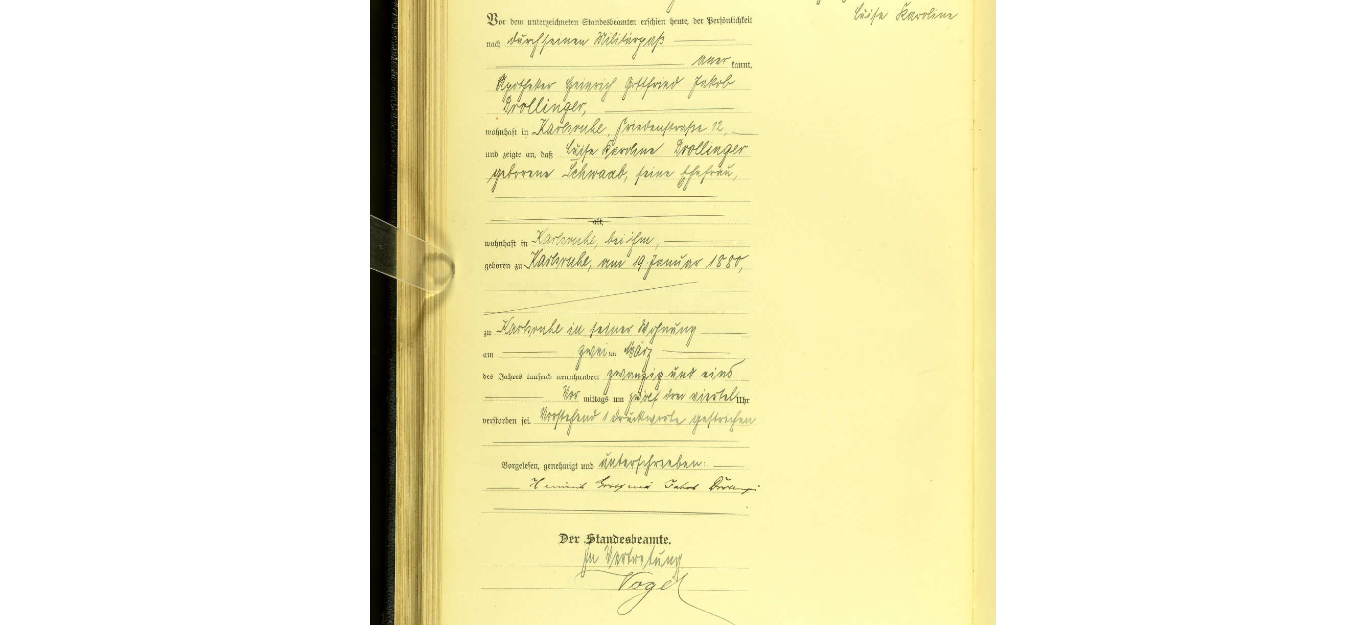 Luise Karolene
Vor dem unterzeichneten Standesbeamten erschien heute, der Persönlichkeit
nach durch seinen Militärpaß
aner kannt,
Apotheker Heinrich Gottfried Jakob
Drollinger,
wohnhaft in Karlsruhe, Friedenstraße 12,
und zeigte an, daß Luise Karolene Drollinger
geborene Schwaab, seine Ehefrau,
alt,
wohnhaft in Karlsruhe, bei ihm,
geboren zu Karlsruhe, am 19 Januar 1880,
zu Karlsruhe in seiner Wohnung
am zwei ten März
des Jahres tausend neunhundert zwanzig und eins
Vor mittags um zwölf drei viertel Uhr
verstorben sei. Vorstehend 1 Druckworte gestrichen
Vorgelesen, genehmigt und unterschrieben:
Heinrich Gottfried Jakob Drollinger
Der Standesbeamte.
In Vertretung
Vogel